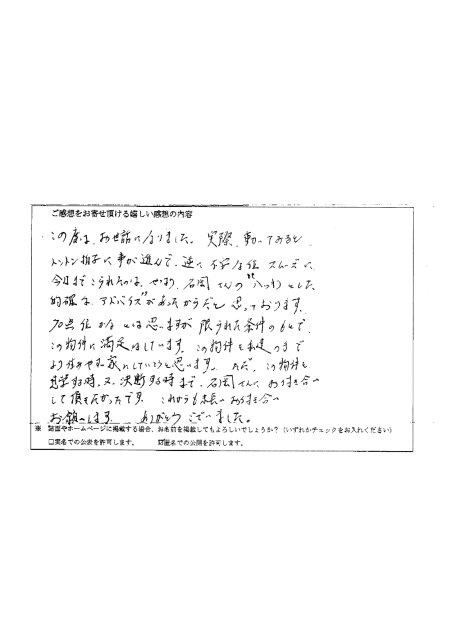 ご感想をお寄せ頂ける嬉しい感想の内容
この度は、お世話になりました。実際、動いてみると
トントン拍子に事が進んで、逆に不安な位スムーズに
今日までこられたのは、やはり、石岡さんの"ハッキリとした
的確な、アドバイス"があったからだと思っております。
70点位かなとは思いますが限られた条件の中で、
この物件に満足はしています。この物件を
より住みやすい家にしていこうと思います。ただ、この物件を
見学する時、又、決断する時まで、石岡さんに、お付き合い
して頂きたかったです。これからも末長いお付き合い
お願いします。ありがとうございました。
※ 誌面やホームページに掲載する場合、お名前を掲載してもよろしいでしょうか？（いずれかチェックをお入れください）
□実名での公表を許可します。 ☑匿名での公開を許可します。